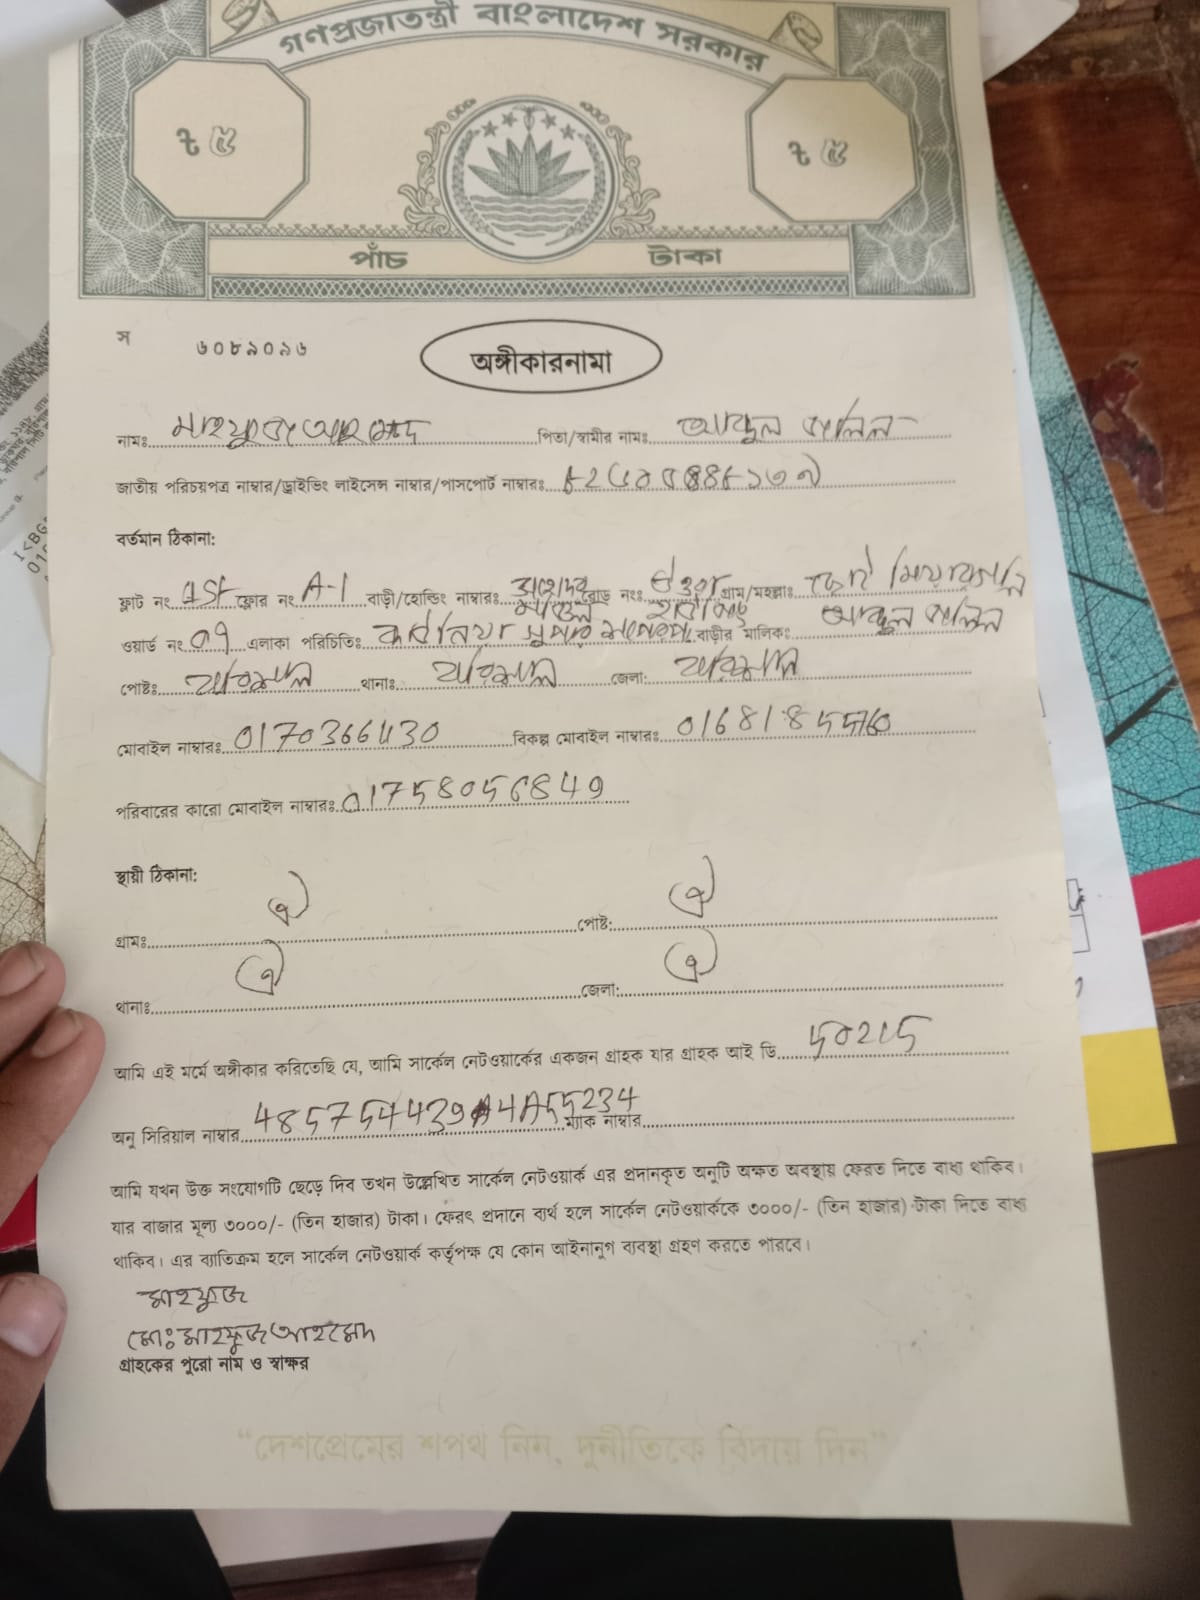 গণপ্রজাতন্ত্রী বাংলাদেশ সরকার
৳ ৫ ৳ ৫
পাঁচ টাকা
স ৬০৮৯০৯৬
অঙ্গীকারনামা
নামঃ মাহফুজ আহমেদ পিতা/স্বামীর নামঃ আব্দুল জলিল
জাতীয় পরিচয়পত্র নাম্বার/ড্রাইভিং লাইসেন্স নাম্বার/পাসপোর্ট নাম্বারঃ
বর্তমান ঠিকানা:
ফ্লাট নং ফ্লোর নং A-1 বাড়ী/হোল্ডিং নাম্বারঃ রোড নংঃ গ্রাম/মহল্লাঃ
ওয়ার্ড নং 09 এলাকা পরিচিতিঃ সুপার বাড়ীর মালিকঃ আব্দুল জলিল
পোষ্টঃ বরিশাল থানাঃ বরিশাল জেলা: বরিশাল
মোবাইল নাম্বারঃ বিকল্প মোবাইল নাম্বারঃ
পরিবারের কারো মোবাইল নাম্বারঃ 01758056849
স্থায়ী ঠিকানা:
গ্রামঃ ঐ পোষ্ট: ঐ
থানাঃ ঐ জেলা: ঐ
আমি এই মর্মে অঙ্গীকার করিতেছি যে, আমি সার্কেল নেটওয়ার্কের একজন গ্রাহক যার গ্রাহক আই ডি 50215
অনু সিরিয়াল নাম্বার 485754439A4A55234 ম্যাক নাম্বার
আমি যখন উক্ত সংযোগটি ছেড়ে দিব তখন উল্লেখিত সার্কেল নেটওয়ার্ক এর প্রদানকৃত অনুটি অক্ষত অবস্থায় ফেরত দিতে বাধ্য থাকিব।
যার বাজার মূল্য ৩০০০/- (তিন হাজার) টাকা। ফেরৎ প্রদানে ব্যর্থ হলে সার্কেল নেটওয়ার্ককে ৩০০০/- (তিন হাজার) টাকা দিতে বাধ্য
থাকিব। এর ব্যাতিক্রম হলে সার্কেল নেটওয়ার্ক কর্তৃপক্ষ যে কোন আইনানুগ ব্যবস্থা গ্রহণ করতে পারবে।
মাহফুজ
মোঃ মাহফুজ আহমেদ
গ্রাহকের পুরো নাম ও স্বাক্ষর
“দেশপ্রেমের শপথ নিন, দুর্নীতিকে বিদায় দিন”